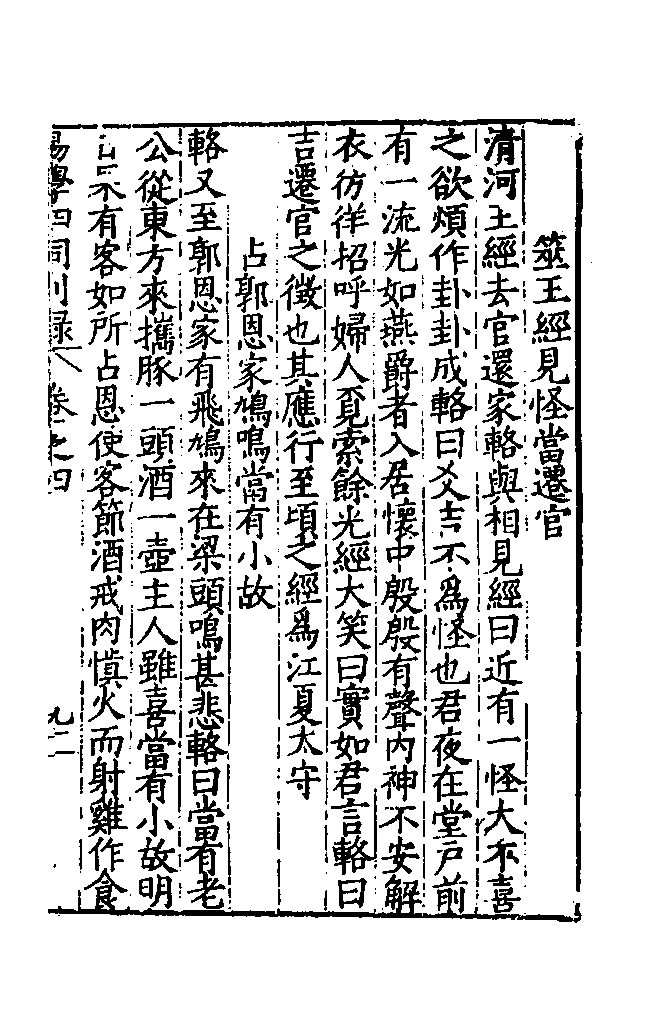 筮王經見怪當遷官
清河王經去官還家輅與相見經曰近有一怪大不喜
之欲煩作卦卦成輅曰爻吉不爲怪也君夜在堂戸前
有一流光如燕爵者入居懷中殷殷有聲内神不安解
衣彷徉招呼婦人覓索餘光經大笑曰實如君言輅曰
吉遷官之徵也其應行至頃之經爲江夏太守
占郭恩家鳩鳴當有小故
輅又至郭恩家有飛鳩來在梁頭鳴甚悲輅曰當有老
公從東方來攜豚一頭酒一壺主人雖喜當有小故明
日果有客如所占恩使客節酒戒肉慎火而射雞作食
易學四同别録 卷之四 九二